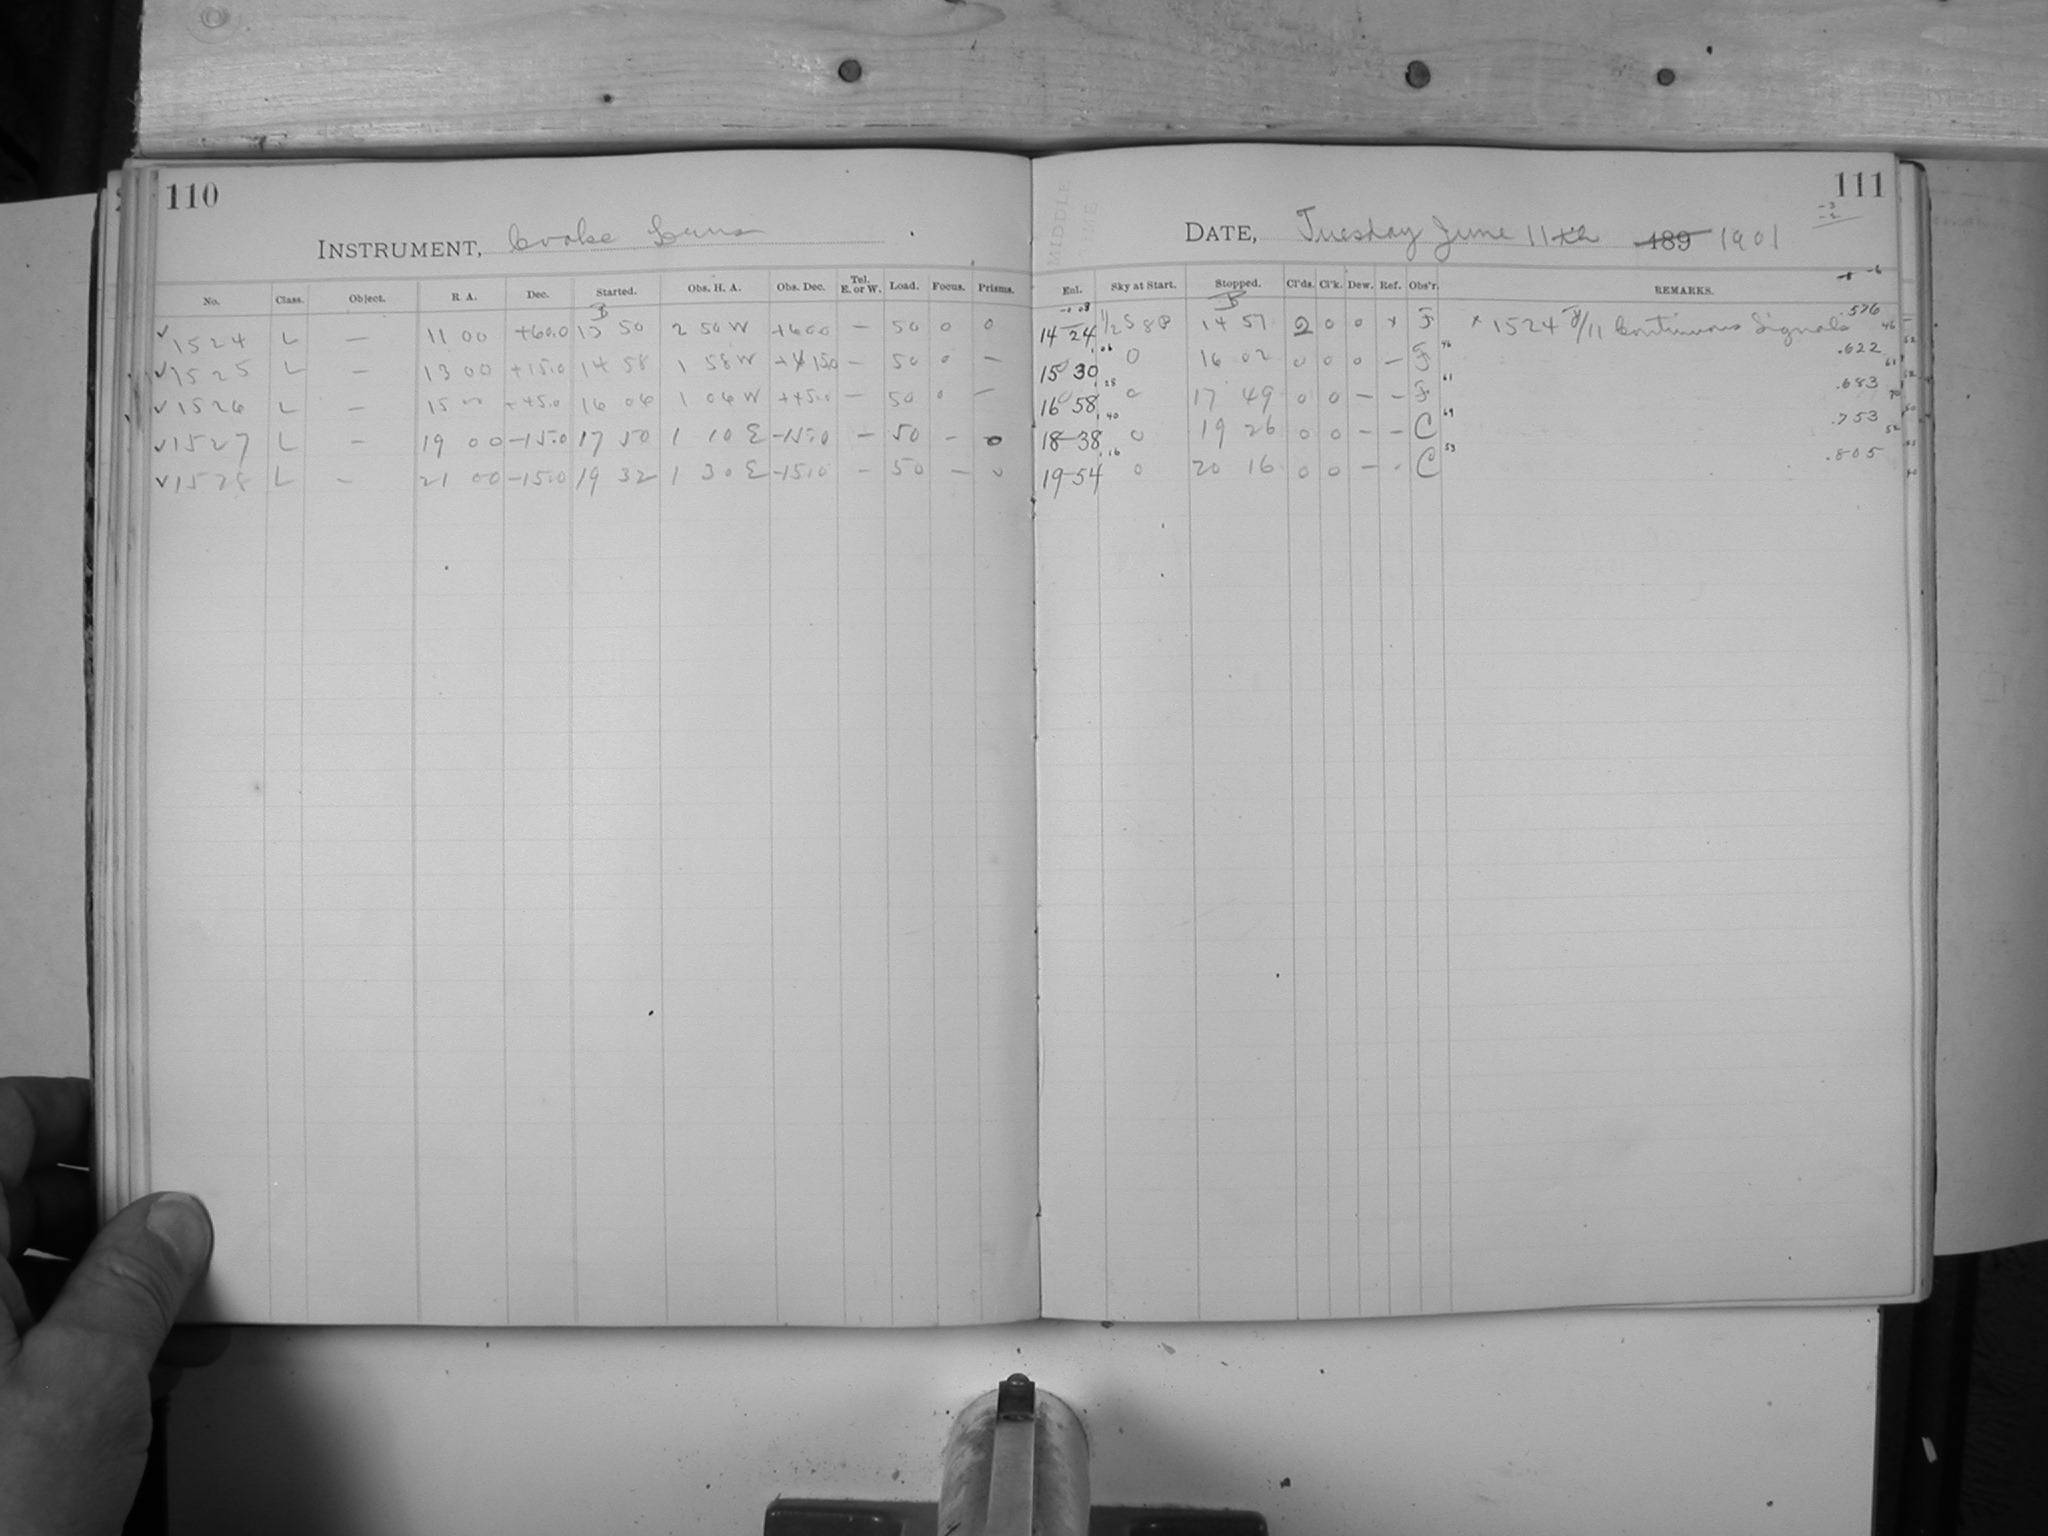 110
INSTRUMENT, Cooke Lens
No. Class. Object. R. A. Dec. Started. Obs. H. A. Obs. Dec. Tel. E. or W. Load. Focus. Prisms.
✓1524 L — 11 00 +60.0 13 50 2 50 W +60.0 — 50 0 0
✓1525 L — 13 00 +15.0 14 58 1 58 W +15.0 — 50 0 —
✓1526 L — 15 00 +45.0 16 04 1 04 W +45.0 — 50 0 —
✓1527 L — 19 00 -15.0 17 50 1 10 E -15.0 — 50 — 0
✓1528 L — 21 00 -15.0 19 32 1 30 E -15.0 — 50 — 0
111
MIDDLE
DATE, Tuesday June 11th 189 1901
Enl. Sky at Start. Stopped. Cl'ds. Cl'k. Dew. Ref. Obs'r. REMARKS.
14 24 14 57 2 0 0 x F x 1524 F/11 Continuous Signals .576
15 30 0 16 02 0 0 0 — F .622
16 58 0 17 49 0 0 — — F .683
18 38 0 19 26 0 0 — — C .753
19 54 0 20 16 0 0 — - C .805